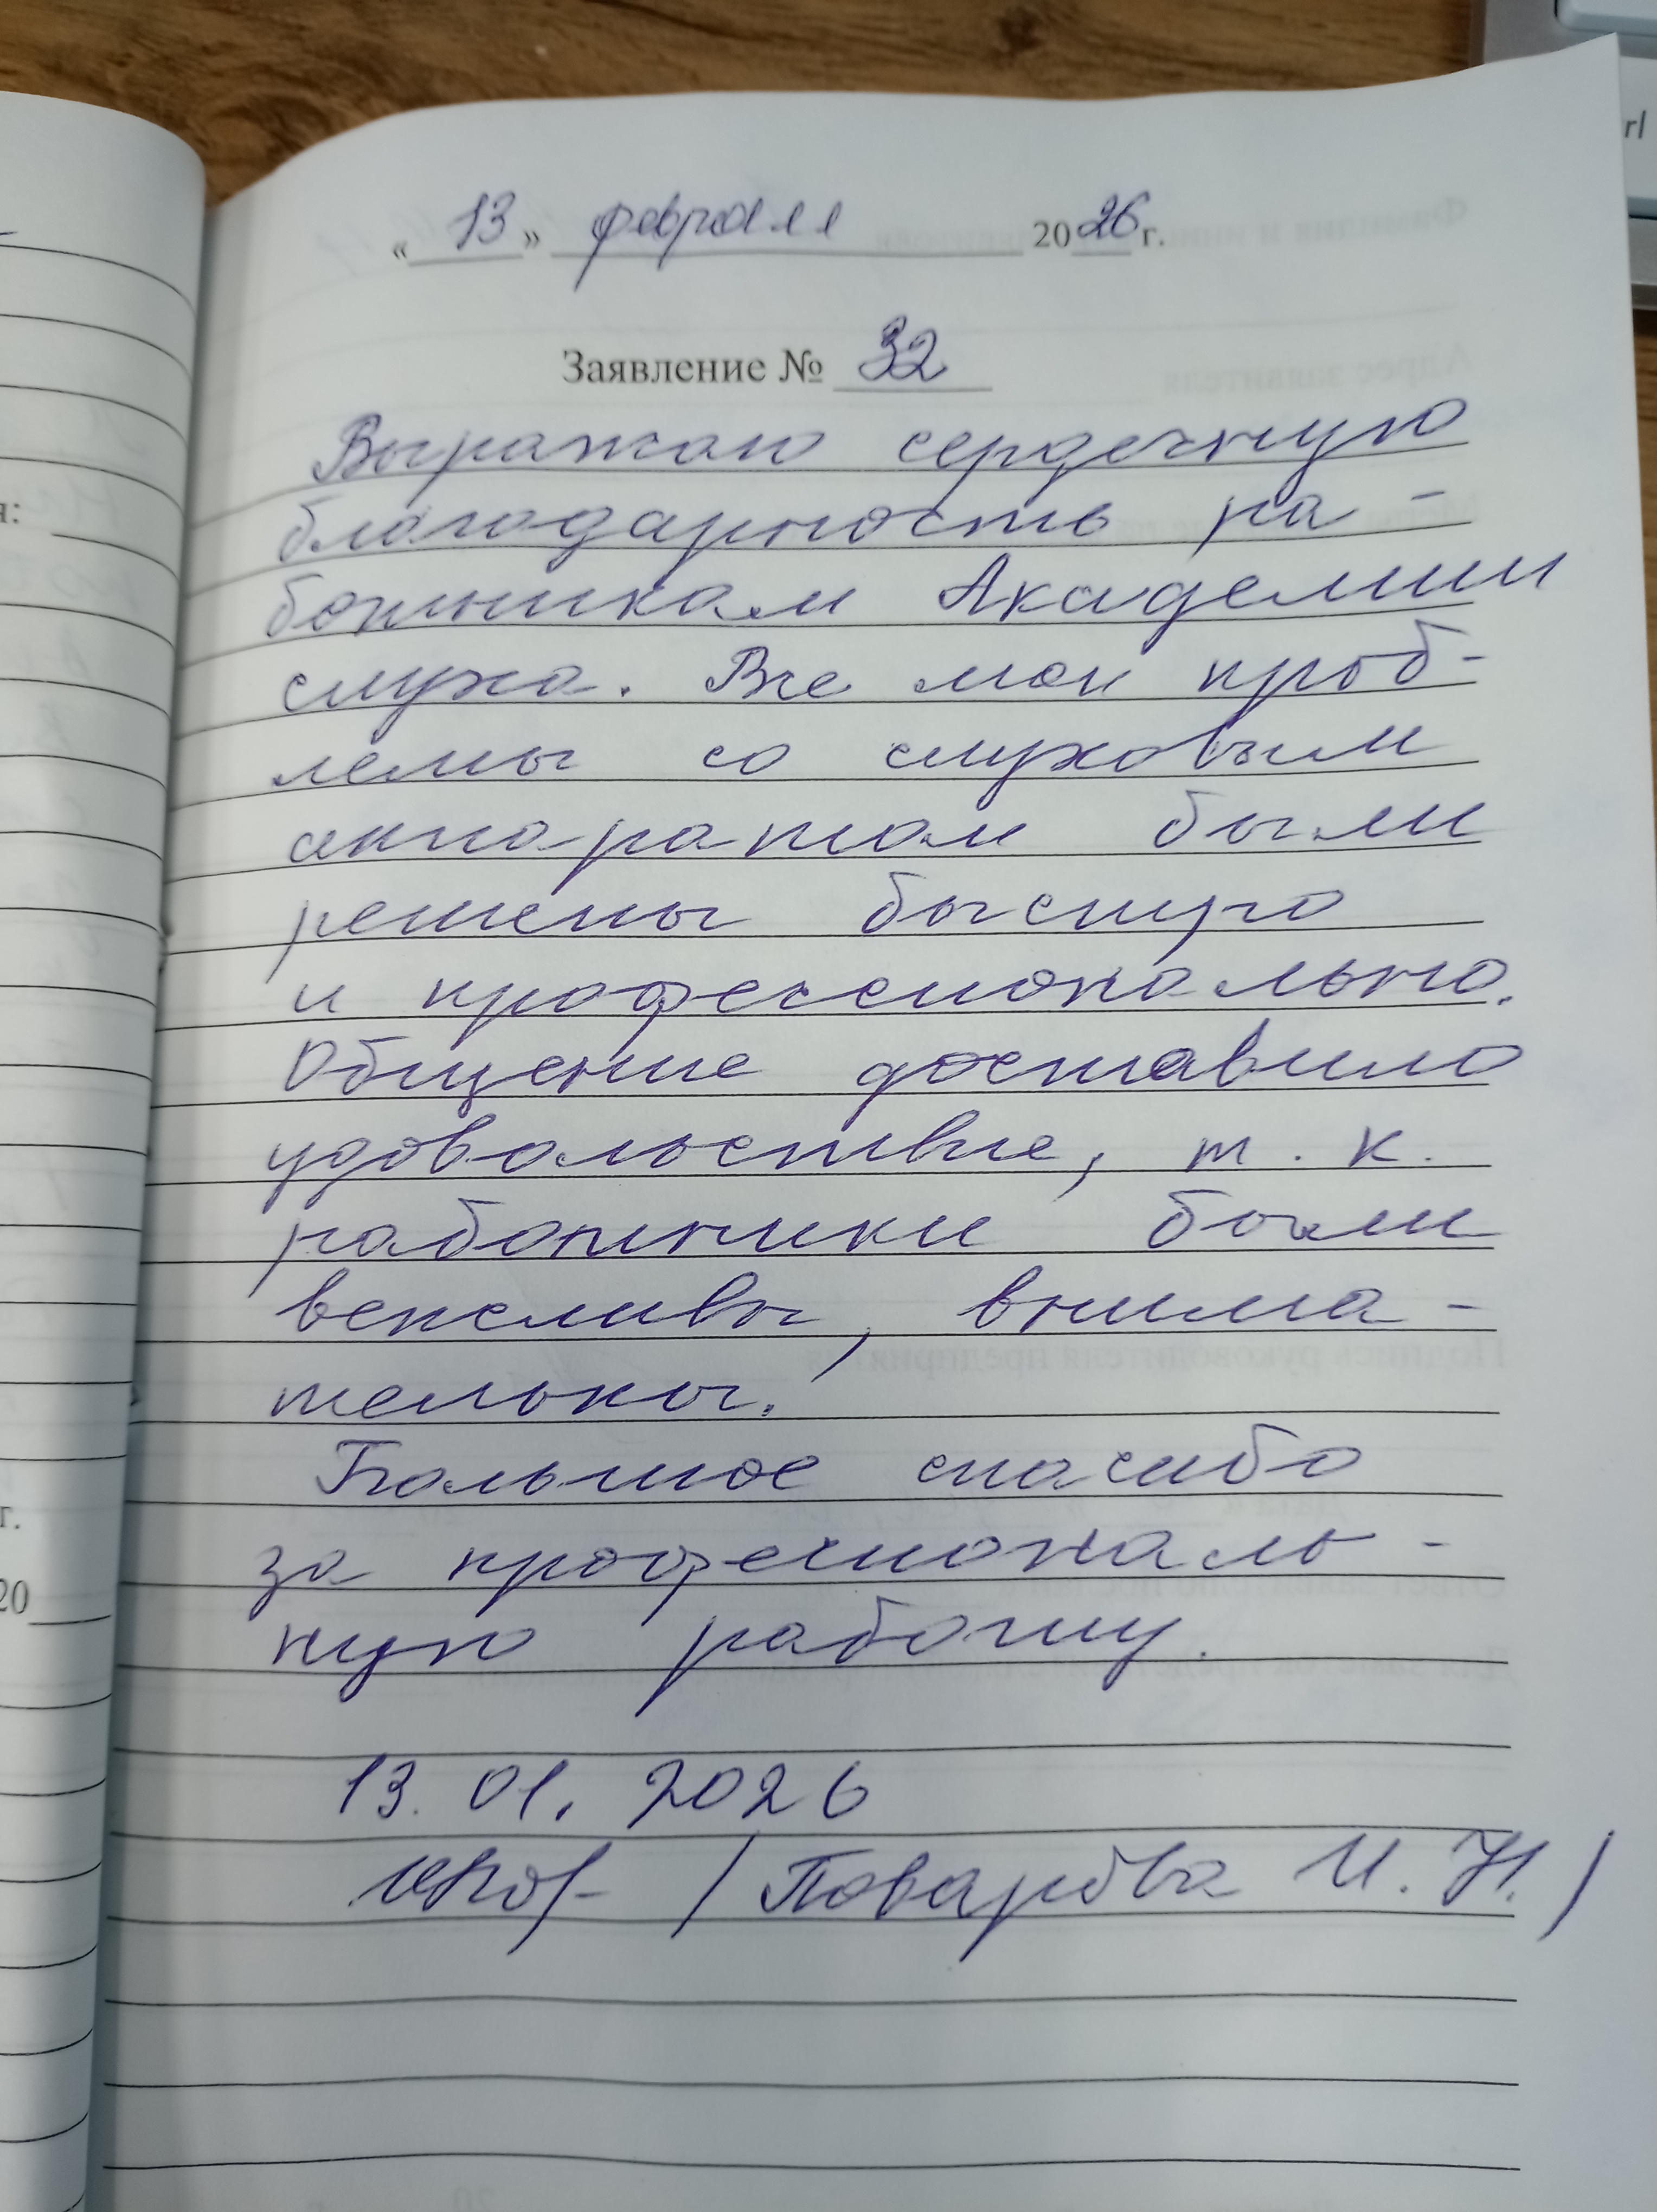 « 13 » февраля 2026 г.
Заявление № 32
Выражаю сердечную
благодарность ра-
ботникам Академии
слуха. Все мои проб-
лемы со слуховым
аппаратом были
решены быстро
и профессионально.
Общение доставило
удовольствие, т. к.
работники были
вежливы, внима-
тельны.
Большое спасибо
за професиональ-
ную работу.
13.01.2026
/ Поварова И. Н. /
я:
г.
20
rl